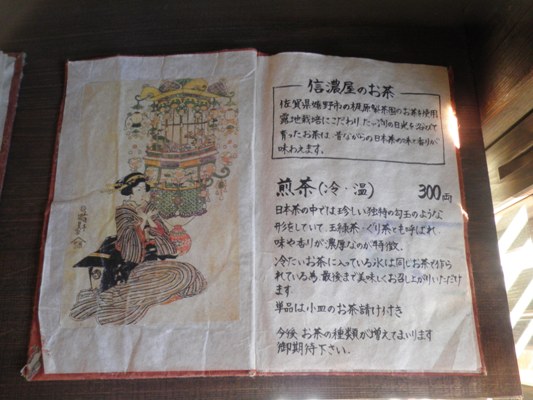 信濃屋のお茶
佐賀県嬉野市の梶原製茶園のお茶を使用
露地栽培にこだわり、たっぷりの日光を浴びて
育ったお茶は、昔ながらの日本茶の味と香りが
味わえます。
煎茶(冷・温) 300円
日本茶の中では珍しい独特の勾玉のような
形をしていて、玉緑茶・ぐり茶とも呼ばれ、
味や香りが濃厚なのが特徴。
冷たいお茶に入っている氷は同じお茶で作ら
れている為、最後まで美味しくお召し上がりいただけ
ます
単品は小皿のお茶請け付き
今後、お茶の種類が増えてまいります
御期待下さい。